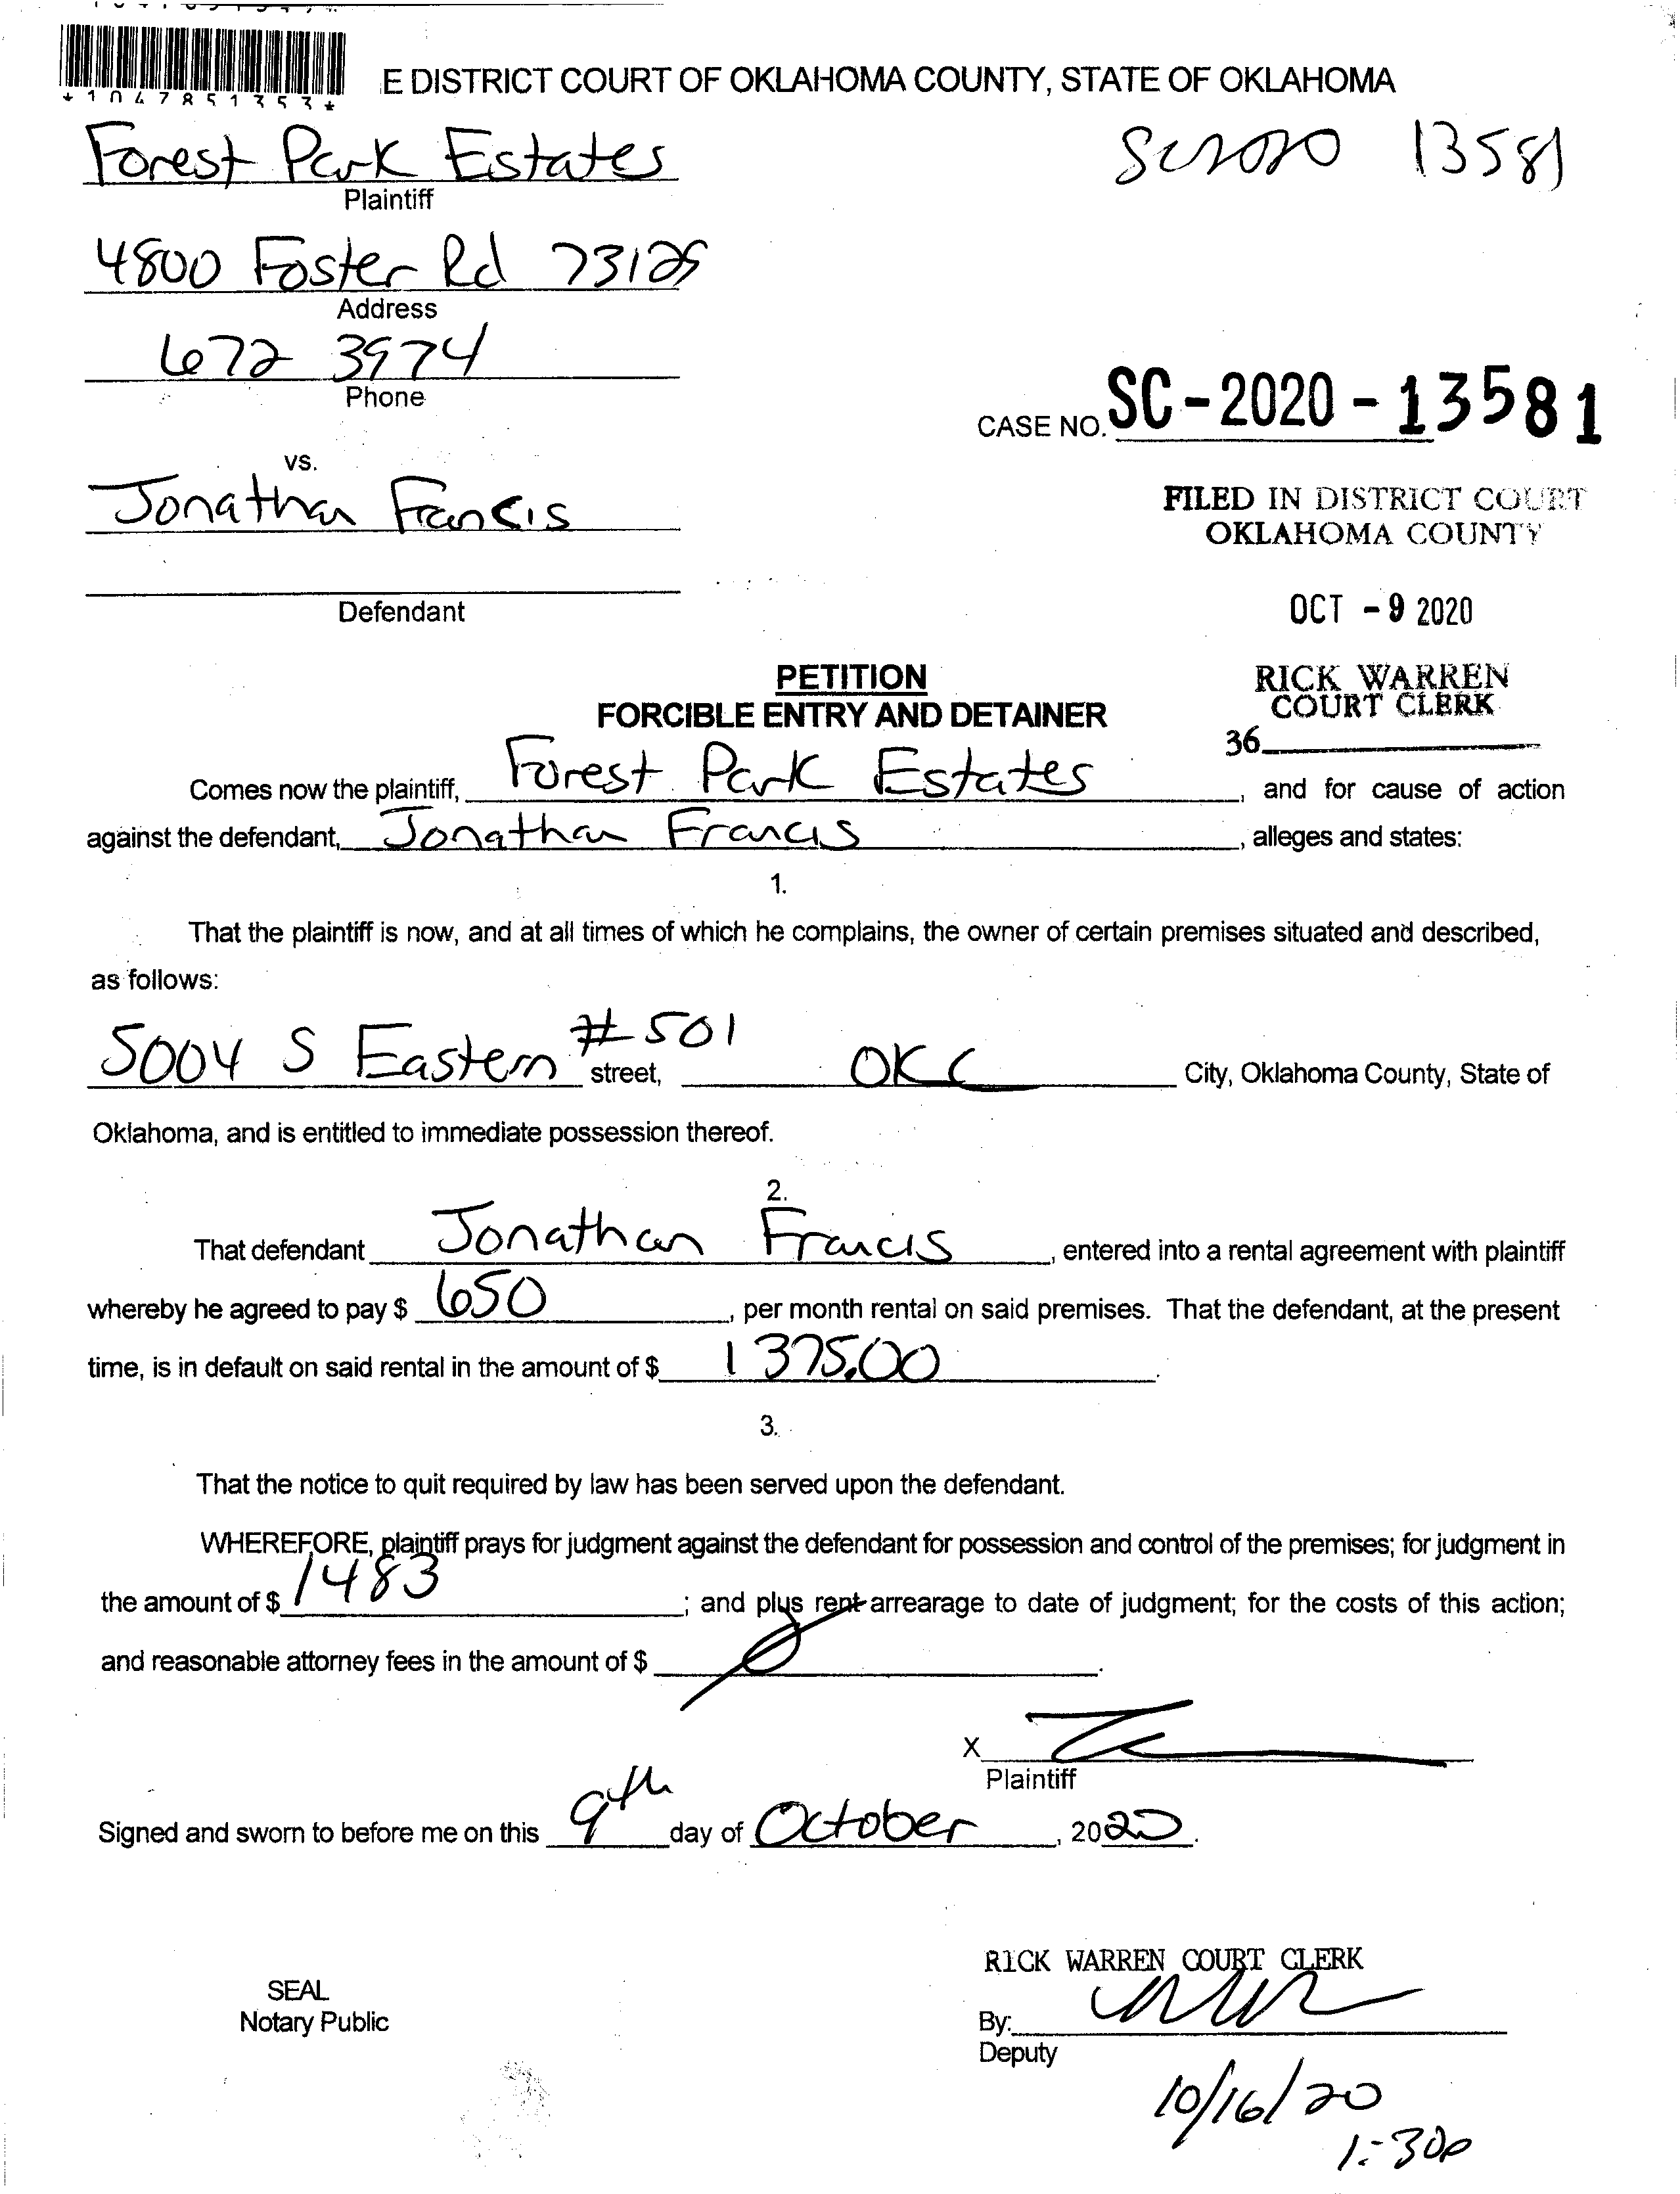 *1047851353*
E DISTRICT COURT OF OKLAHOMA COUNTY, STATE OF OKLAHOMA
Forest Park Estates
SC2020 13581
Plaintiff
4800 Foster Rd 73129
Address
672 3974
Phone
CASE NO. SC-2020-13581
vs.
Jonathan Francis
FILED IN DISTRICT COURT
OKLAHOMA COUNTY
Defendant
OCT -9 2020
PETITION
FORCIBLE ENTRY AND DETAINER
RICK WARREN
COURT CLERK
36
Comes now the plaintiff, Forest Park Estates, and for cause of action
against the defendant, Jonathan Francis, alleges and states:
1.
That the plaintiff is now, and at all times of which he complains, the owner of certain premises situated and described,
as follows:
5004 S Eastern #501 street, OKC City, Oklahoma County, State of
Oklahoma, and is entitled to immediate possession thereof.
2.
That defendant Jonathan Francis, entered into a rental agreement with plaintiff
whereby he agreed to pay $ 650, per month rental on said premises. That the defendant, at the present
time, is in default on said rental in the amount of $ 1375.00.
3.
That the notice to quit required by law has been served upon the defendant.
WHEREFORE, plaintiff prays for judgment against the defendant for possession and control of the premises; for judgment in
the amount of $ 1483; and plus rent arrearage to date of judgment; for the costs of this action;
and reasonable attorney fees in the amount of $
X
Plaintiff
Signed and sworn to before me on this 9th day of October, 2020.
RICK WARREN COURT CLERK
SEAL
Notary Public
By:
Deputy
10/16/20
1:30p